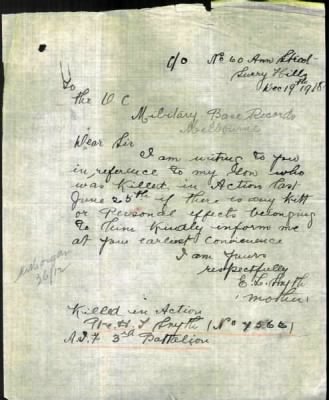 c/o No 60 Ann Street
Surry Hills
Dec 19th 1918
To
the O C
Military Base Records
Melbourne
Dear Sir
I am writing to you
in reference to my Son who
was Killed, in Action last
June 25th if there is any Kitt
or Personal effects belonging
to Him Kindly inform me
at your earliest convenience
I am yours
respectfully
E. Smyth
(mother)
Killed in Action
Pte H. J Smyth (No
A.I.F 3rd Battelion